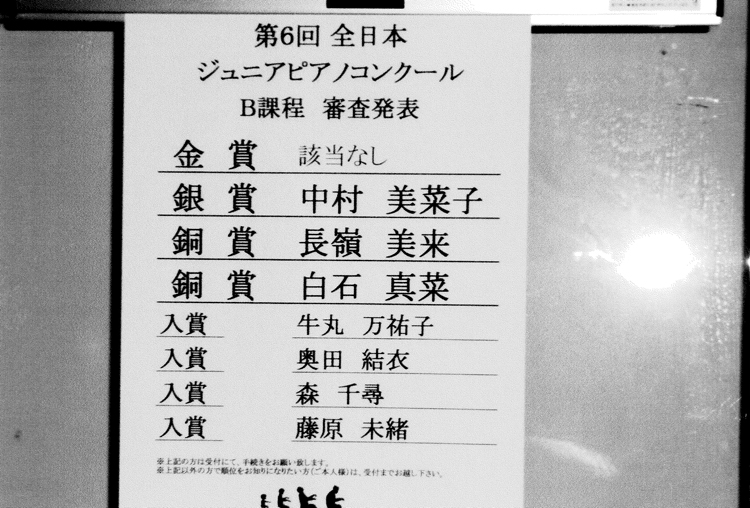 第6回 全日本
ジュニアピアノコンクール
B課程 審査発表
金賞 該当なし
銀賞 中村 美菜子
銅賞 長嶺 美来
銅賞 白石 真菜
入賞 牛丸 万祐子
入賞 奥田 結衣
入賞 森 千尋
入賞 藤原 未緒
※上記の方は受付にて、手続きをお願い致します。
※上記以外の方で順位をお知りになりたい方(ご本人様)は、受付までお越し下さい。